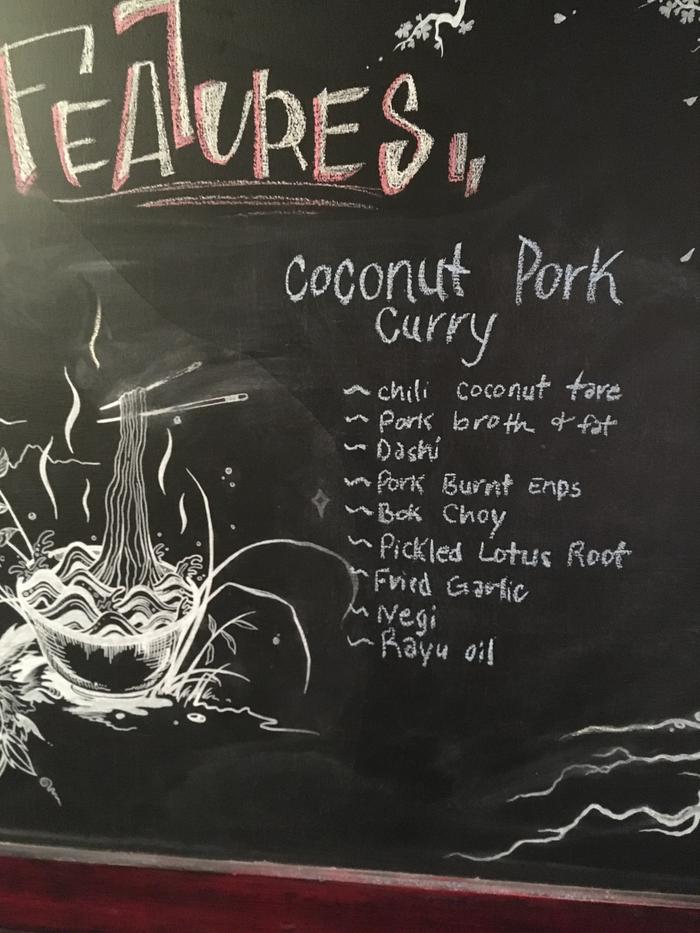 FEATURES
Coconut Pork
Curry
~ chili coconut tare
~ Pork broth & fat
~ Dashi
~ Pork Burnt Enps
~ Bok Choy
~ Pickled Lotus Root
~ Fried Garlic
~ Negi
~ Rayu oil